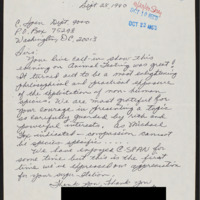 Sept 25, 1990
C Span Dept 4000
P.O. Box 75298
Washington, DC, 20013
OCT 23 REC'D
Sirs:
Your live call-in show this
evening on Animal Testing was great!
It turned out to be a most enlightening
philosophical and practical exposure
of the exploitation of non-human
species. We are most grateful for
your courage in processing a topic
so carefully guarded by rich and
powerful interests. As Michael
Fox indicated - compassion cannot
be species specific.
We have enjoyed C-SPAN for
some time but this is the first
time we expressed our appreciation
for your open Station.
Thank You, Thank You!